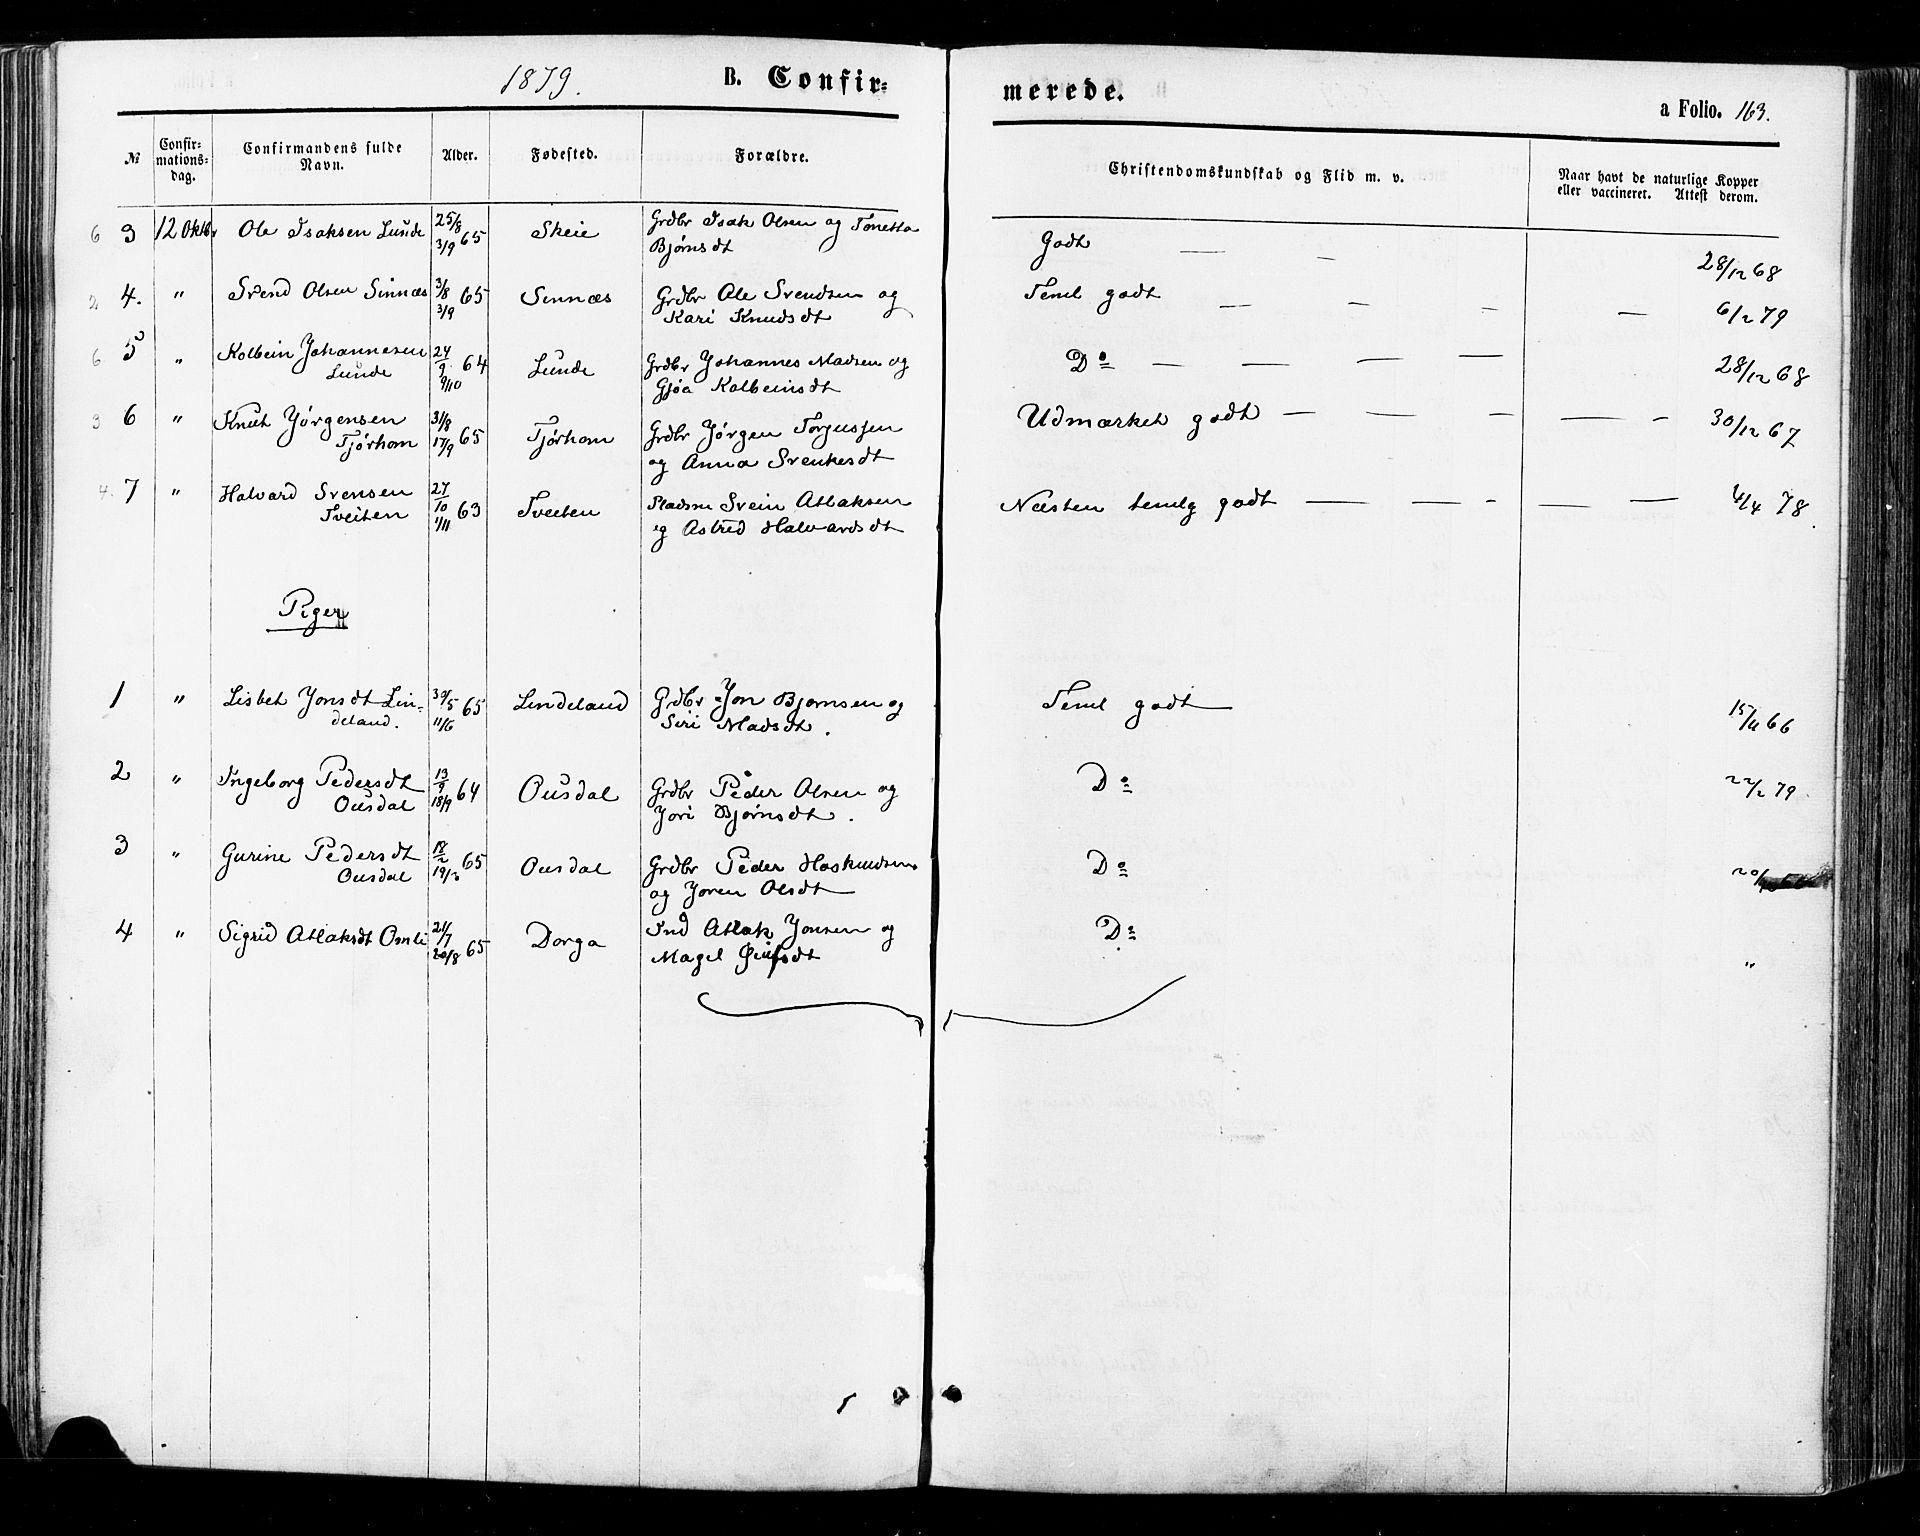 1879.
B. Confir=
merede.
a Folio. 163.
№ Confir-mations-dag. Confirmandens fulde Navn. Alder. Fødested. Forældre. Christendomskundskab og Flid m. v. Naar havt de naturlige Kopper eller vaccineret. Attest derom.
6 3 12 Oktbr Ole Isaksen Lunde 25/8 3/9 65 Skeie Grdbr Isak Olsen og Tonetta Bjørnsdt Godt — — 28/12 68
2 4. " Svend Olsen Sinnæs 3/8 3/9 65 Sinnæs Grdbr Ole Svendsen og Kari Knudsdt Teml godt — — — — 6/2 79
6 5 " Kolbein Johannesen Lunde 24/9 9/10 64 Lunde Grdbr Johannes Madsen og Gjøa Kolbeinsdt Do — — — — 28/12 68
3 6 " Knut Jørgensen Tjørhom 31/8 17/9 65 Tjørhom Grdbr Jørgen Torjussen og Anna Svenkesdt Udmærket godt — — — — — 30/12 67
4. 7 " Halvard Svensen Tveiten 27/10 1/11 63 Tveiten Pladsm Svein Atlaksen og Astred Halvardsdt Næsten temlg godt — — — — — 4/4 78
Piger
1 " Lisbet Jonsdt Lin=deland. 30/5 11/6 65 Lindeland Grdbr Jon Bjørnsen og Siri Madsdt. Teml godt — 15/11 66
2 " Ingeborg Pedersdt Ousdal 13/9 18/9 64 Ousdal Grdbr Peder Olsen og Jori Bjørnsdt. Do 22/2 79
3 " Gurine Pedersdt Ousdal 18/2 19/3 65 Ousdal Grdbr Peder Hoskuldsen og Joren Olsdt Do
4 " Sigrid Atlaksdt Omli 21/7 20/8 65 Dorga Ind Atlak Jonsen og Magel Do "